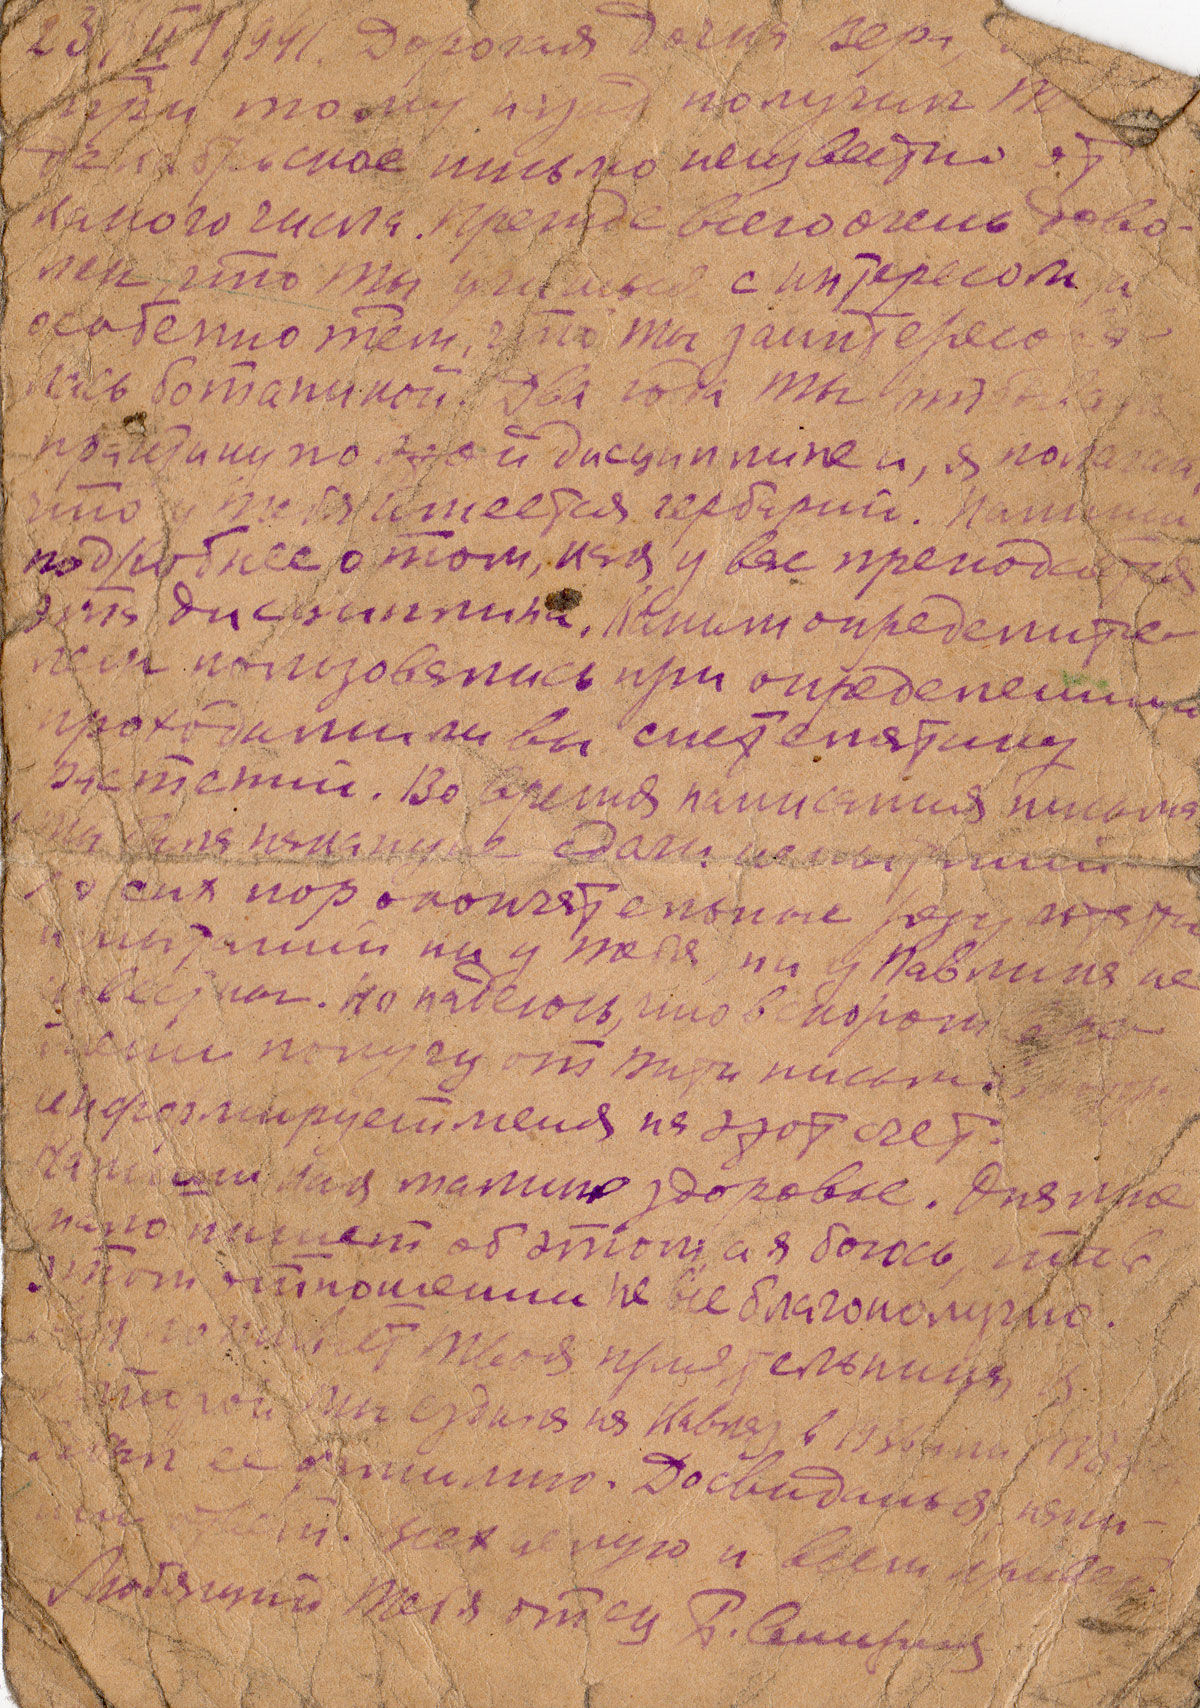 23/II 1941. Дорогая дочка Вера,
при тому назад получил
декабрьское письмо неизвестно от
какого числа. Прежде всего очень дово-
лен, что ты учишься с интересом и
особенно тем, что ты заинтересова-
лась ботаникой. Два года ты отбывала
практику по этой дисциплине и, я полагаю,
что у тебя имеется гербарий. Напиши
подробнее о том, как у вас преподается
эта дисциплина. Каким определите-
лем пользовались при определении
проходили ли вы систематику
растений. Во время написания письма
ты была накануне сдачи испытаний
до сих пор окончательные результаты
испытаний ни у тебя, ни у Павлика не
известны. Но надеюсь, что в скором
получу от тети письмо
информирует меня на этот счет.
Напиши как мамино здоровье. Она мне
мало пишет об этом, а я боюсь, что в
этом отношении не все благополучно.
Как поживает твоя приятельница, с
которой ты ездила на Кавказ в 193 или 193
ее фамилию. До свиданья, напи-
ши ответ. Всех целую и всем привет.
Любящий тебя отец Б. Смирнов